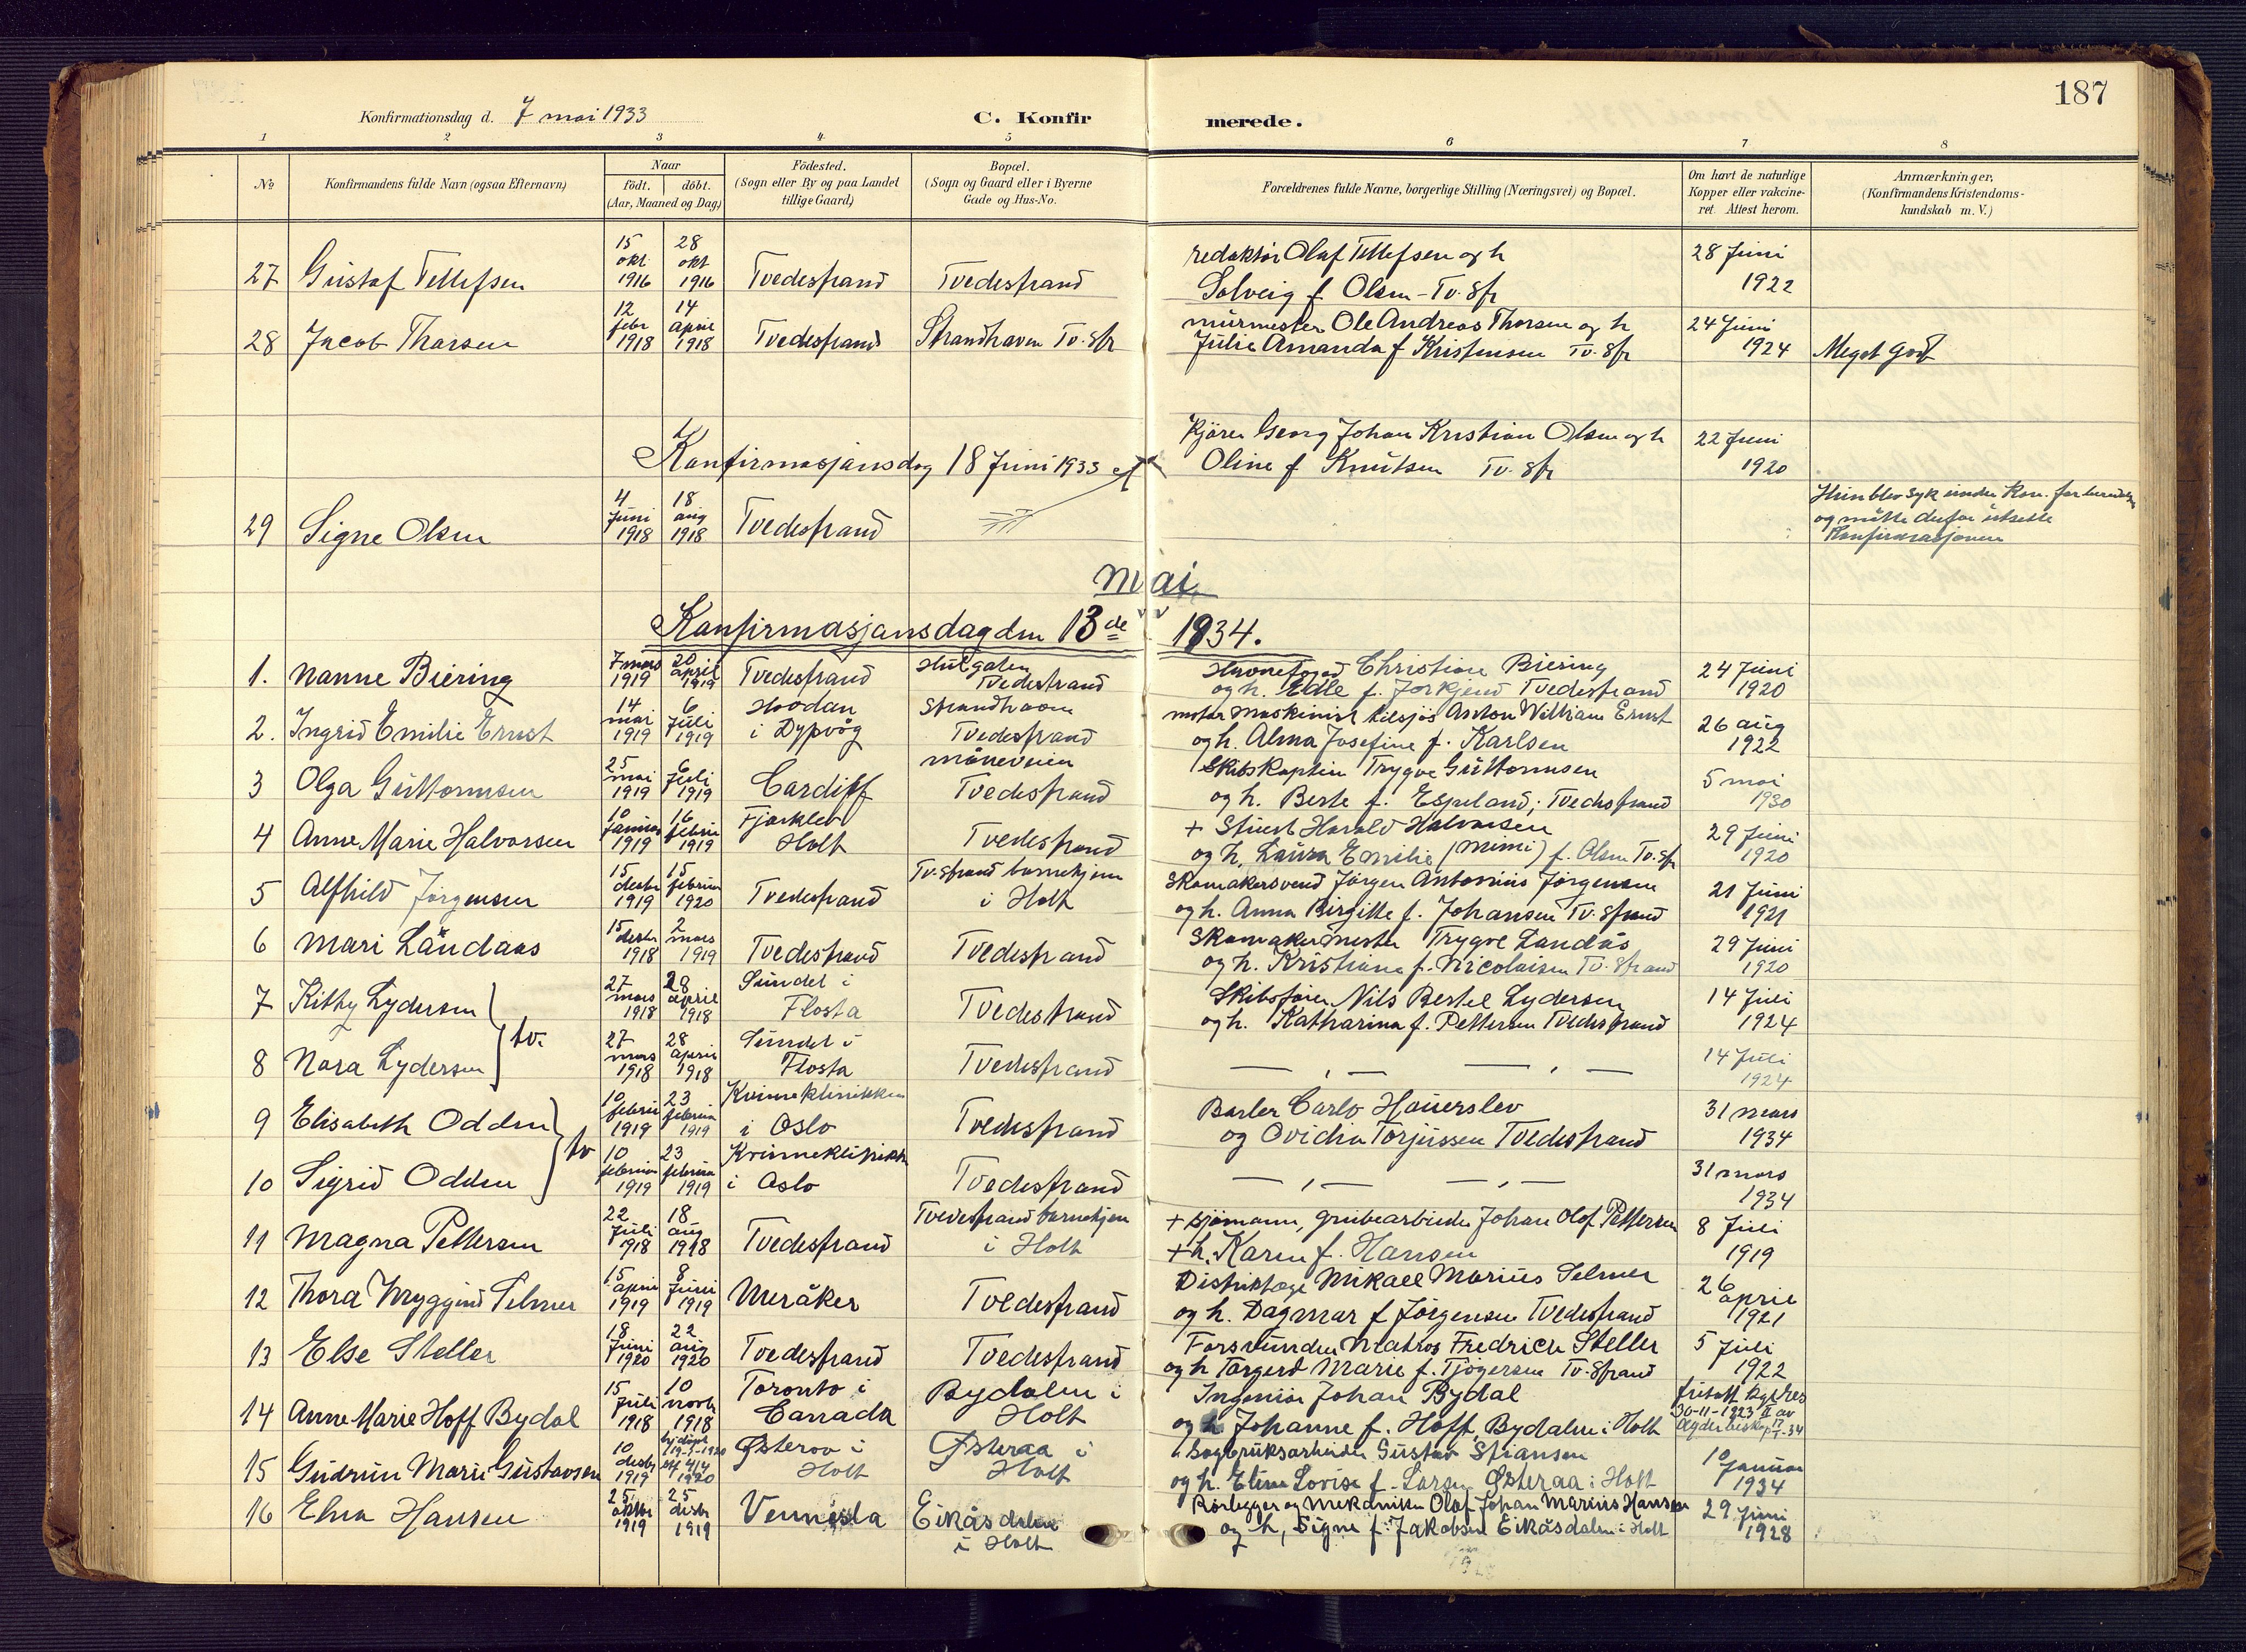 187
Konfirmationsdag d. 7 mai 1933
C. Konfirmerede.
1 2 3 4 5 6 7 8
No
Konfirmandens fulde Navn (ogsaa Efternavn)
Naar
födt. döbt.
(Aar, Maaned og Dag)
Födested.
(Sogn eller By og paa Landet
tillige Gaard)
Bopæl.
(Sogn og Gaard eller i Byerne
Gade og Hus-No.
Forældrenes fulde Navne, borgerlige Stilling (Næringsvei) og Bopæl.
Om havt de naturlige
Kopper eller vakcine-
ret. Attest herom.
Anmærkninger,
(Konfirmandens Kristendoms-
kundskab m. V.)
27 Gustaf Tellefsen 15 okt. 1916 28 okt 1916 Tvedestrand Tvedestrand
redaktör Olaf Tellefsen og h
Solveig f. Olsen - Tv. Str
28 Juni
1922
28 Jacob Thorsen 12 febr 1918 14 april 1918 Tvedestrand Strandhaven Tv. Str
murmester Ole Andreas Thorsen og h
Julie Amanda f Kristensen Tv. Str
24 Juni
1924
Meget godt
Konfirmasjonsdag 18 Juni 1933
Kjörer Georg Johan Kristian Olsen og h
Oline f Knutsen Tv. Str
22 Juni
1920
29 Signe Olsen 4 Juni 1918 18 aug 1918 Tvedestrand
Hun blev syk under Kon. forberedelse
og måtte derfor utsette
Konfirmasjonen
mai
Konfirmasjonsdag den 13de 1934.
1. Nanne Biering 7 mars 1919 20 april 1919 Tvedestrand Hulgaten Tvedestrand
Havnefoged Christian Biering
og h. Edle f. Torkjend Tvedestrand
24 Juni
1920
2. Ingrid Emilie Ernst 14 mai 1919 6 Juli 1919 i Dypvåg Strandhaven Tvedestrand
motor maskinist tilsjös Anton William Ernst
og h. Alma Josefine f. Karlsen
26 aug
1922
3 Olga Guttormsen 25 mai 1919 6 Juli 1919 Cardiff måneveien Tvedestrand
Skibskaptein Trygve Guttormsen
og h. Berte f. Espeland, Tvedestrand
5 mai
1930
4 Anne Marie Halvorsen 10 Januar 1919 16 februar 1919 Fjærkleiv Holt Tvedestrand
+ Stuert Harald Halvorsen
og h. Laura Emilie (Mimi) f. Olsen Tv. Str
29 Juni
1920
5 Alfhild Jörgensen 15 desbr 1919 15 februar 1920 Tvedestrand Tv.strand barnehjem i Holt
Skomakersvend Jörgen Antonius Jörgensen
og h. Anna Birgitte f. Johansen Tv. Strand
21 Juni
1921
6 Mari Landaas 15 desbr 1918 2 mars 1919 Tvedestrand Tvedestrand
Skomakermester Trygve Landås
og h. Kristiane f. Nicolaisen Tv. Strand
29 Juni
1920
7 Kitty Lydersen 27 mars 1918 28 april 1918 Sundet i Flosta Tvedestrand
Skibsförer Nils Bertel Lydersen
og h. Katharina f. Pettersen Tvedestrand
14 Juli
1924
tv.
8 Nora Lydersen 27 mars 1918 28 april 1918 Sundet i Flosta Tvedestrand
— , — — , —
14 Juli
1924
9 Elisabeth Odden 10 februar 1919 23 februar 1919 Kvinneklinikken i Oslo Tvedestrand
Barber Carlo Hauerslev
og Ovidia Torjussen Tvedestrand
31 mars
1934
tv
10 Sigrid Odden 10 februar 1919 23 februar 1919 Kvinneklinikk i Oslo Tvedestrand
— , — — , —
31 mars
1934
11 Magna Pettersen 22 Juli 1918 18 aug 1918 Tvedestrand Tvedestrand barnehjem i Holt
+ sjömann, grubearbeider Johan Olof Pettersen
+ h. Karen f. Hansen
8 Juli
1919
12 Thora Myggind Selmer 15 april 1919 8 Juni 1919 Meråker Tvedestrand
Distriktslæge Mikael Marius Selmer
og h. Dagmar f Jörgensen Tvedestrand
26 april
1921
13 Else Steller 18 Juni 1920 22 aug 1920 Tvedestrand Tvedestrand
Forsvunden Matros Fredrich Steller
og h Torgerd Marie f. Tjögersen Tv. Strand
5 Juli
1922
14 Anne Marie Hoff Bydal 15 Juli 1918 10 novbr 1918 Toronto i Canada Bydalen i Holt
Ingeniör Johan Bydal
og h Johanne f. Hoff, Bydalen i Holt
30-11-1923
Agder biskop 17/1-34
15 Gudrun Marie Gustavsen 10 desbr 1919 hjdöpt 1920 Østeraa i Holt Østeraa i Holt
Sagbruksarbeider Gustav Stiansen
og h. Eline Lovise f. Larsen Østeraa i Holt
10 Januar
1934
16 Elna Hansen 25 oktbr 1919 25 desbr 1919 Vennesla Eikåsdalen i Holt
Rörlegger og mekaniker Olaf Johan Marius Hansen
og h, Signe f. Jakobsen Eikåsdalen i Holt
29 Juni
1928